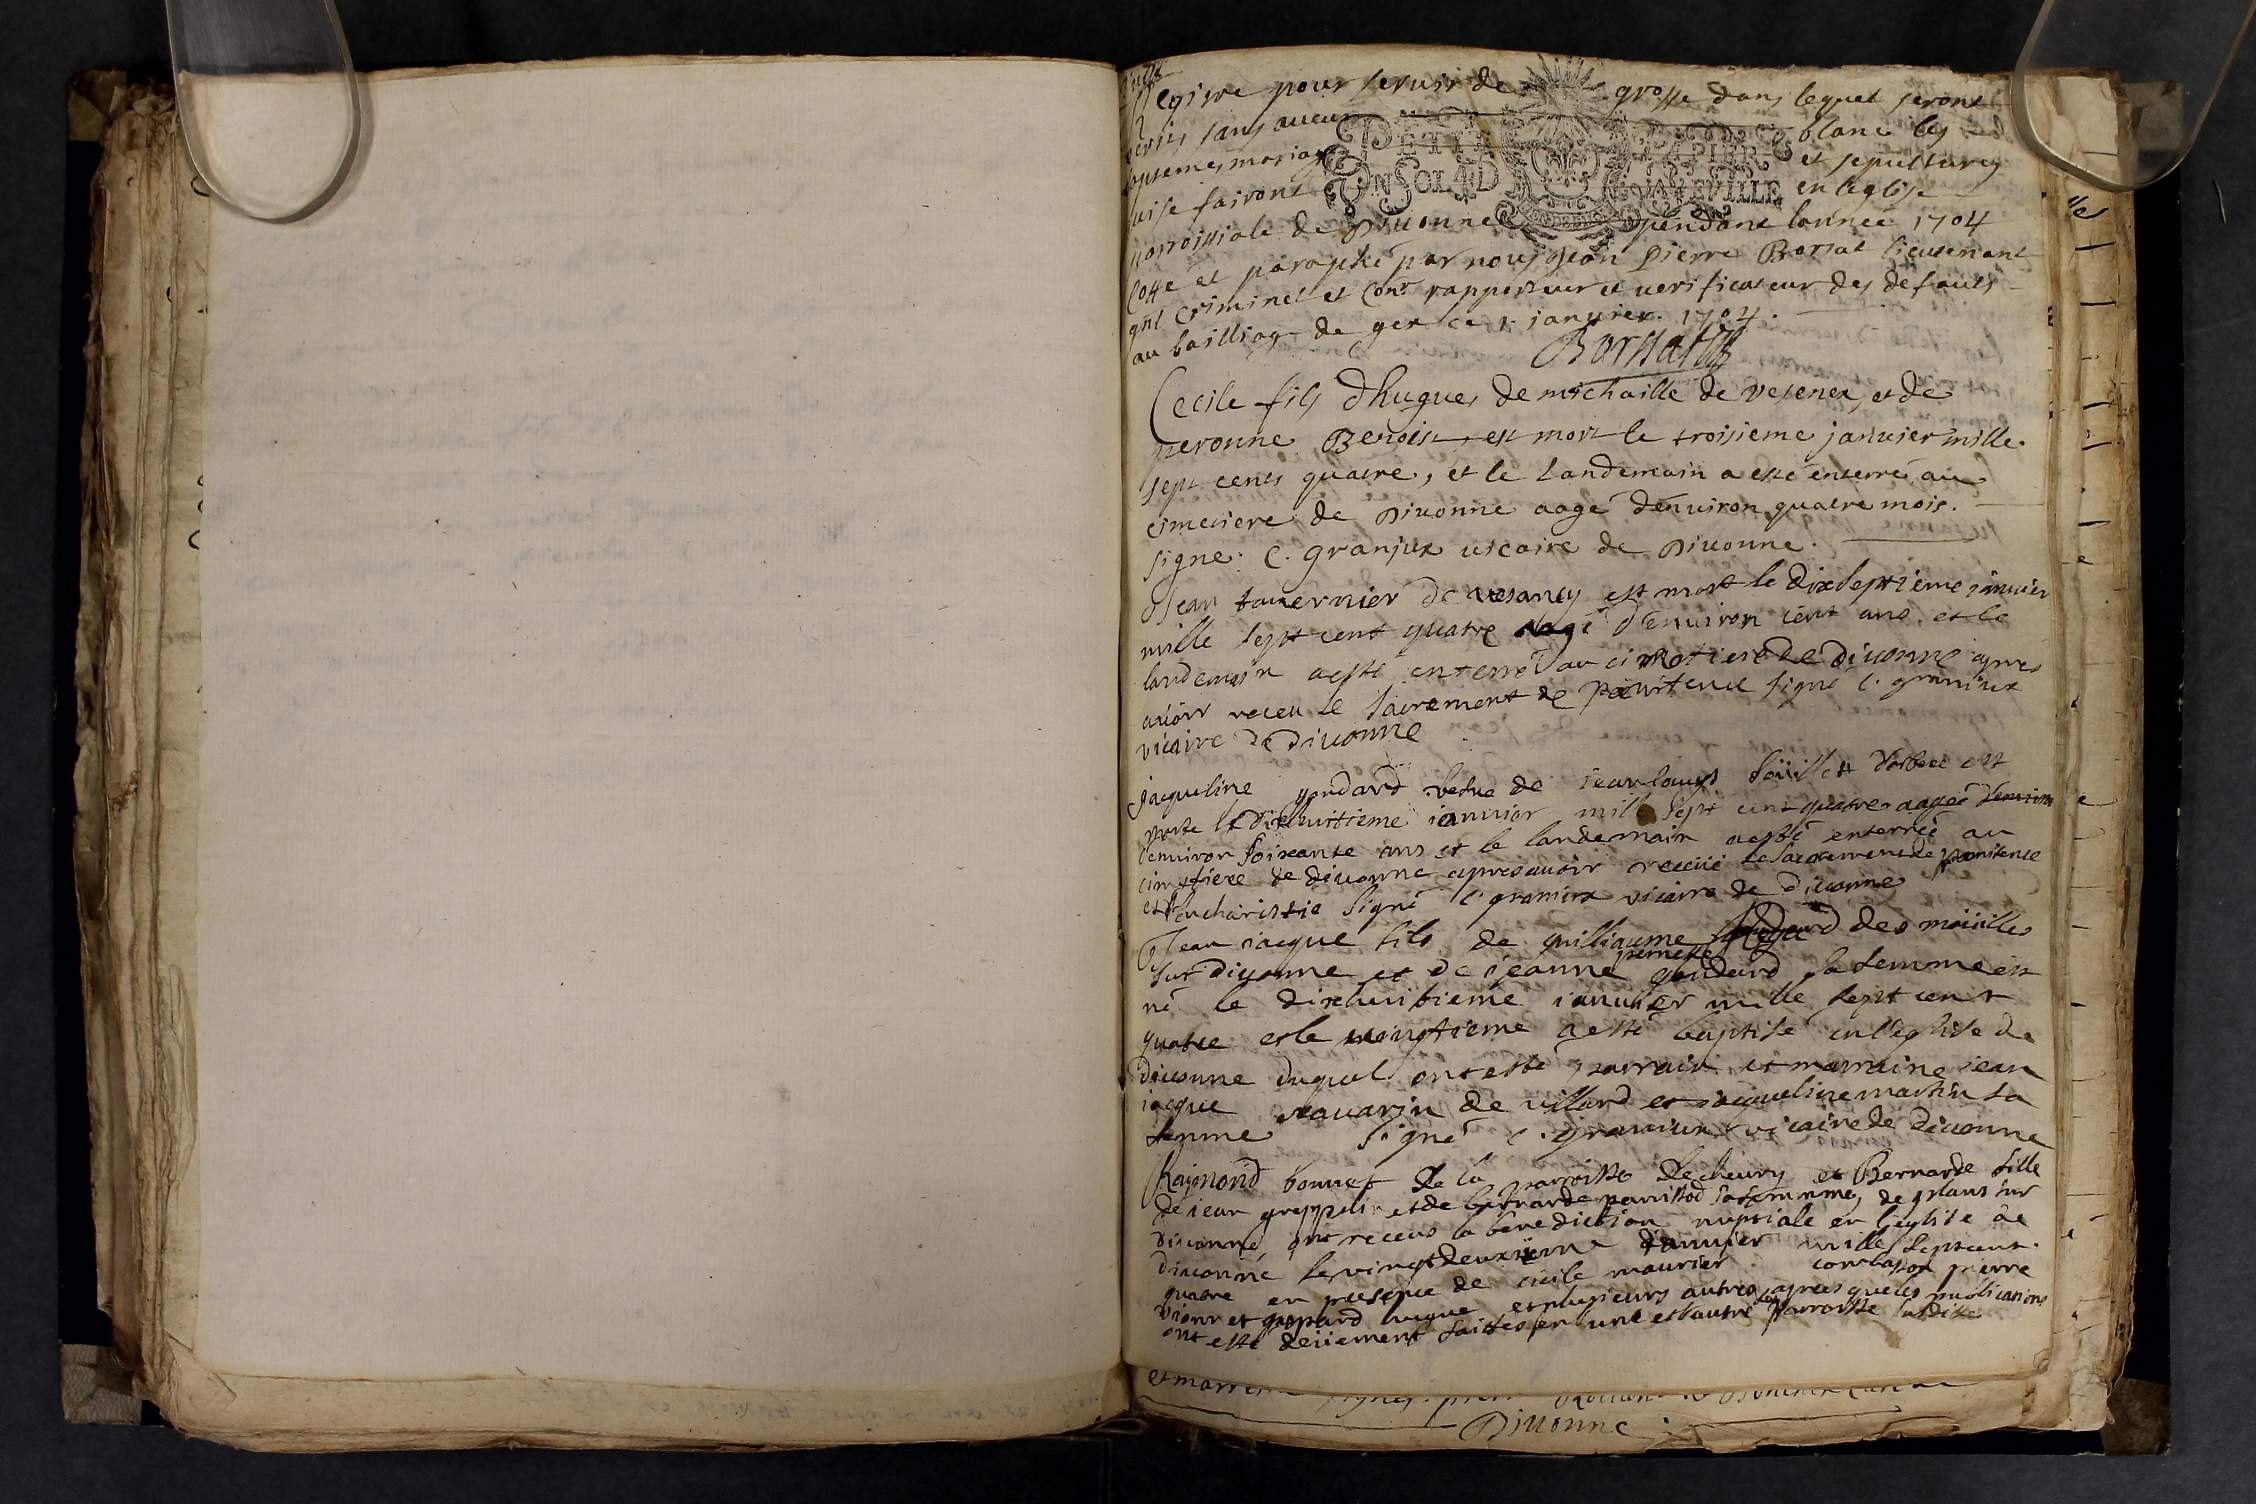 Registre pour servir de grosse dans lequel seront
escris sans aucun blanc les
baptemes mariages et sepultures
qui se fairont en leglise
parroissiale de Divonne pendant lannee 1704
Cotté et paraphé par nous Jean Pierre Borsat lieutenant
gnl Criminel et Conr rapporteur et verificateur des defauts
au bailliage de gex ce 1 janvier 1704.
Borsat
PETIT PAPIER
UN SOL 4 D LA FEVILLE
Cecile fils d'hugues de michaille de vesenex, et de
peronne Benoist est mort le troisieme janvier mille
sept cents quatre, et le landemain a esté enterré au
cimetiere de Divonne aagé denviron quatre mois.
signe: C. granjux vicaire de Divonne.
Jean tavernier de vesancy est mort le dixseptieme janvier
mille sept cent quatre aagé d'environ cent ans et le
landemain a esté enterré au cimetiere de divonne apres
avoir receu le sacrement de pœnitence signé C. graniux
vicaire de divonne
Jacqueline gondard vefve de jean louys est
morte le dixhuitieme ianvier mille sept cent quatre aagée denviron
denviron soixante ans et le landemain a esté enterrée au
cimetiere de divonne apres avoir receüe le sacrement de pœnitence
et d'eucharistie signé C. graniux vicaire de divonne
Jean iacque fils de guilliaume des moüilles
pernette
sur divonne et de jeanne gondard sa femme est
né le dixhuitieme ianvier mille sept cent
quatre et le vingtieme a esté baptisé en l'eglise de
divonne duquel ont esté parrain et marraine jean
iacque ravarin de villard et iacqueline martin sa
femme signé C. graniux vicaire de divonne
Raymond bonnet de la parroisse de chevry et Bernarde fille
de iean greppelin et de bernarde panissod sa femme, de grans sur
divonne, ont receus la benediction nuptiale en l'eglise de
divonne le vingtdeuxieme ianvier mille sept cent
quatre en presence de cicile maurier pierre
vionnet gaspard hugue et plusieurs autres apres que les publications
ont esté deüement faittes en une et l'autre parroisse susditte
et marr
Divonne